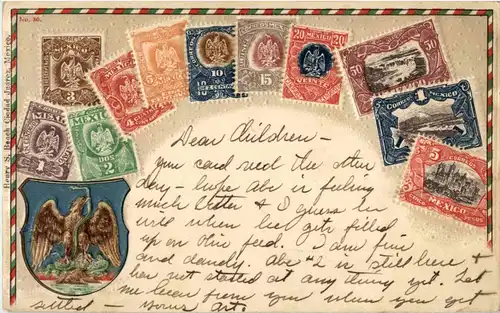 No. 36.
Henry S. Beach Ciudad Juarez, Mexico.
3
4
5
10
15
20 MEXICO 20
50
50
1
CORREOS
1
MEXICO
2
DOS
2
5
MEXICO
Dear Children –
your card recd the other
day – hope Abe is feeling
much better & I guess he
will when he gets filled
up on Ohio feed. I am fine
and dandy. Abe #2 is still here &
has not started at any thing yet. Let
me hear from you when you get
settled – yours Art.